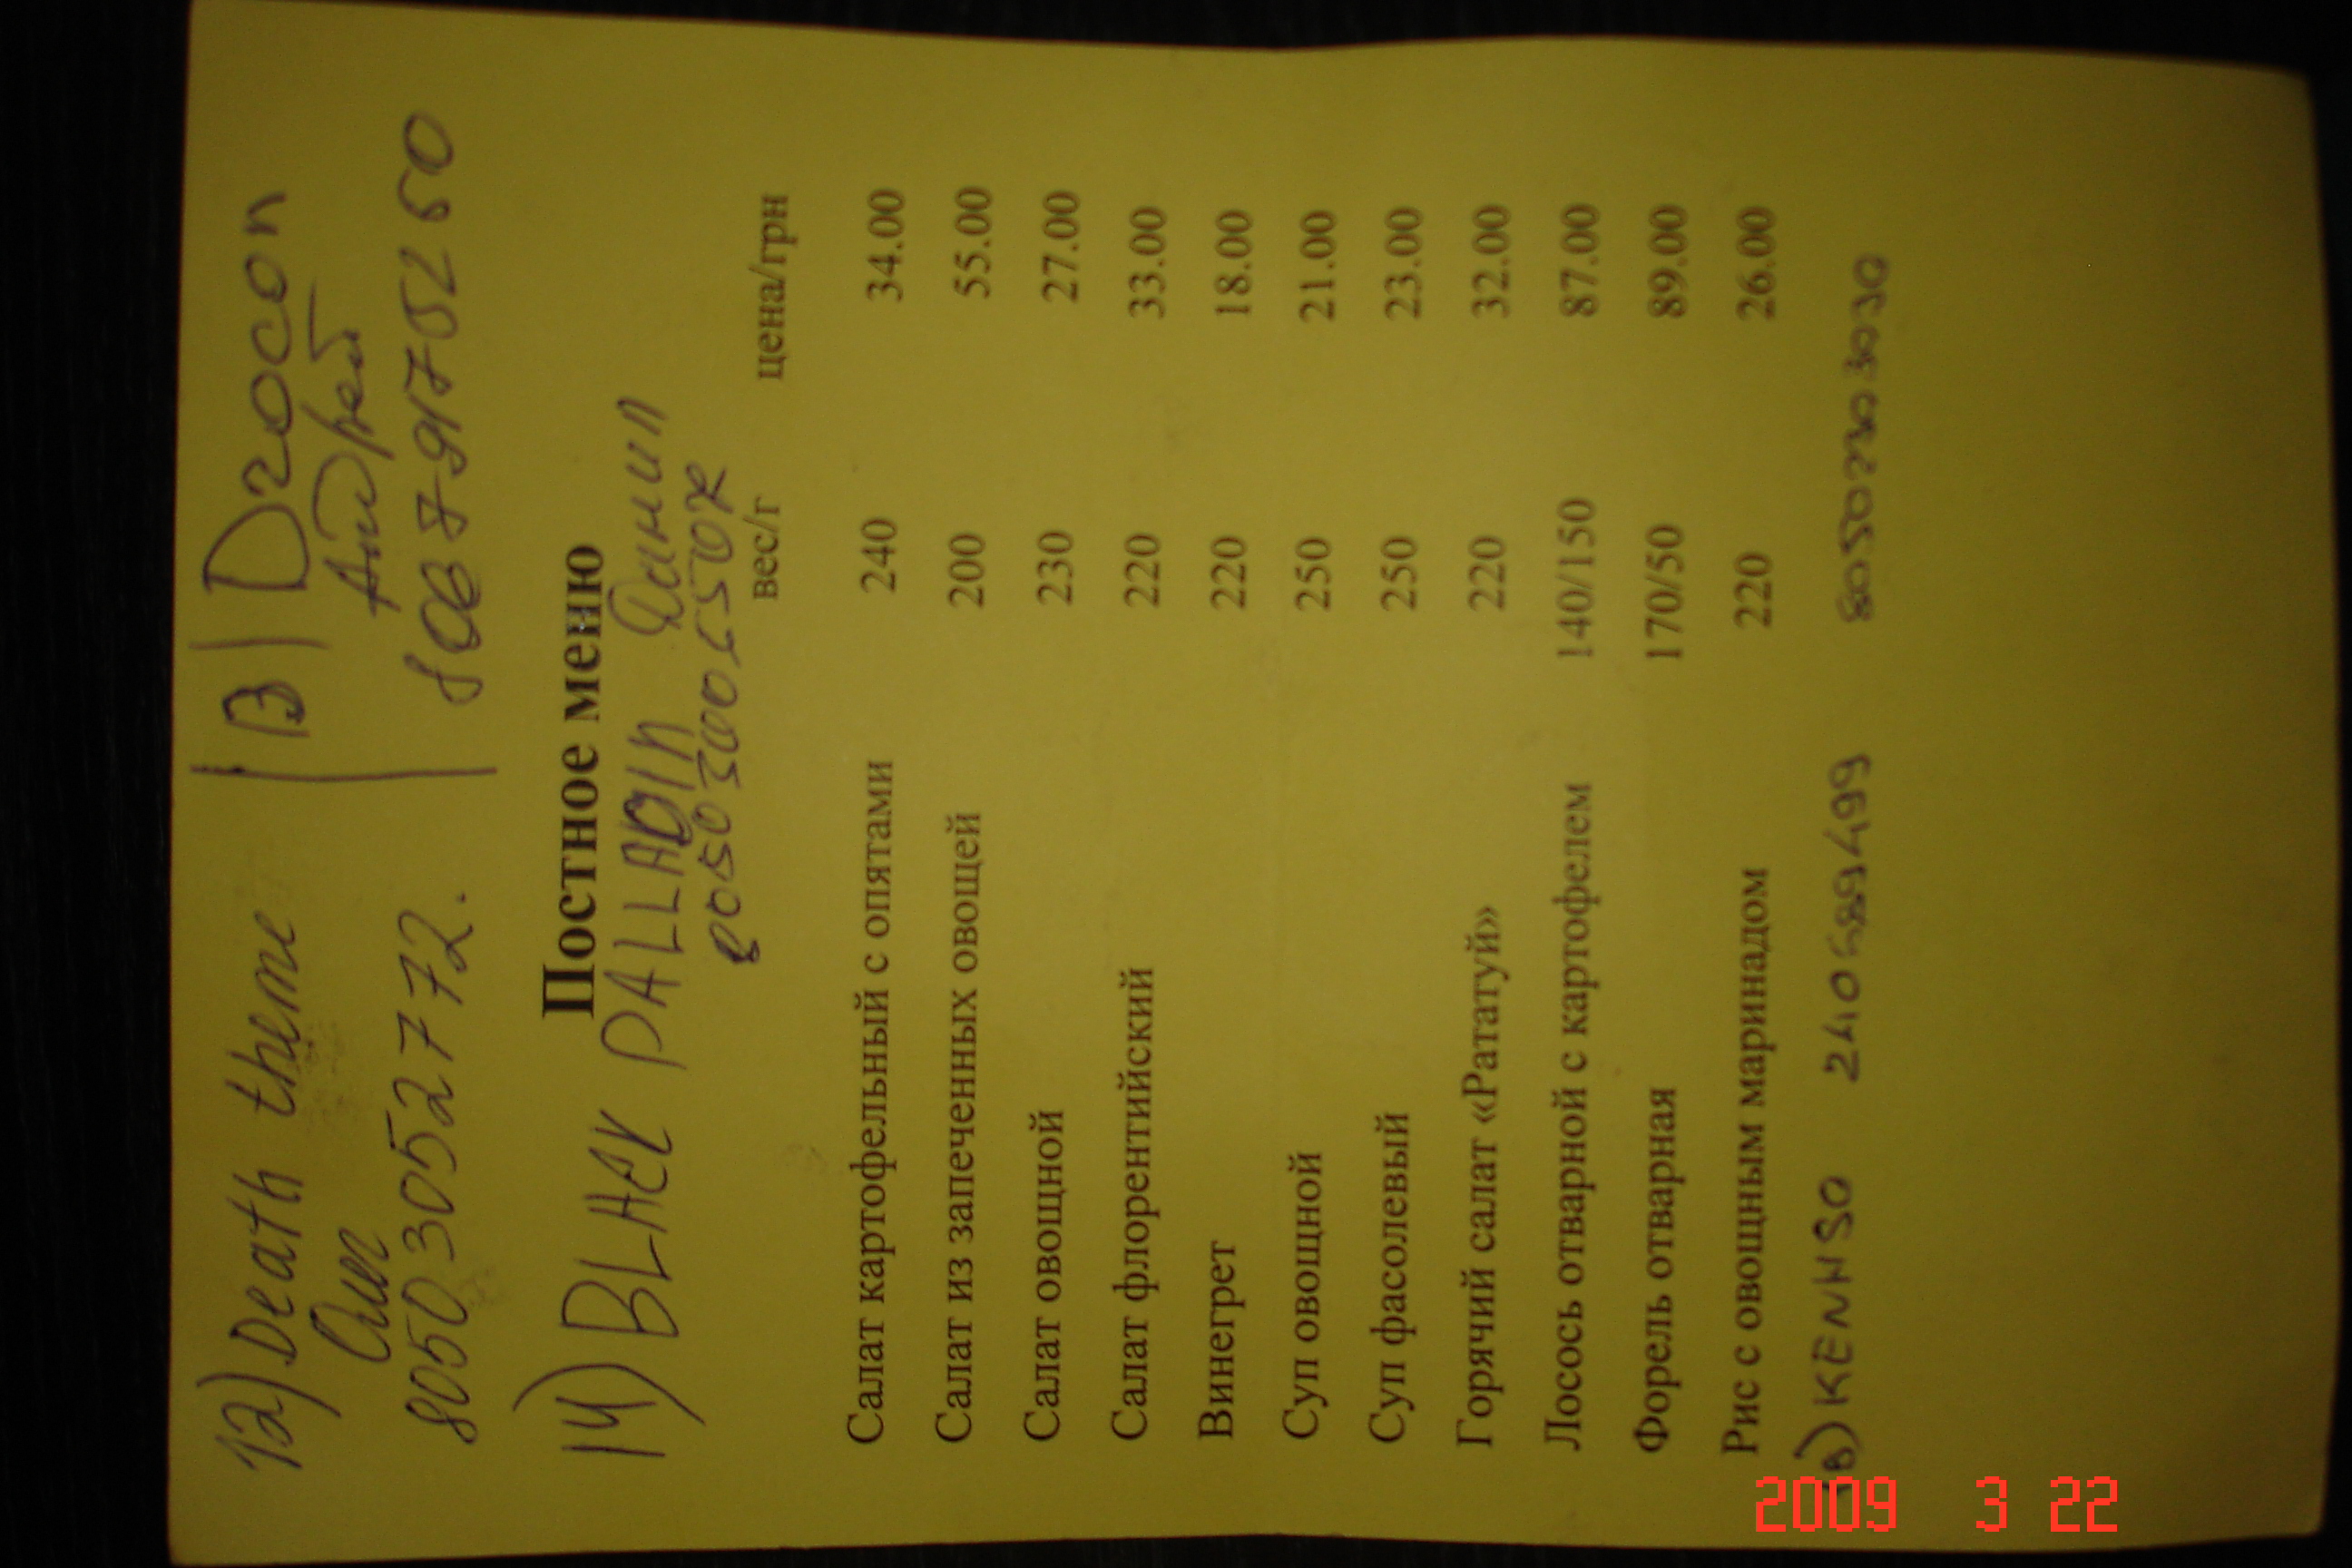 12) Death theme
Оля
80503052772.
13) Dzocon
Андрей
Постное меню
14) BLACK PALLADIN Данил
вес/г цена/грн
Салат картофельный с опятами 240 34.00
Салат из запеченных овощей 200 55.00
Салат овощной 230 27.00
Салат флорентийский 220 33.00
Винегрет 220 18.00
Суп овощной 250 21.00
Суп фасолевый 250 23.00
Горячий салат «Рататуй» 220 32.00
Лосось отварной с картофелем 140/150 87.00
Форель отварная 170/50 89.00
Рис с овощным маринадом 220 26.00
2009 3 22